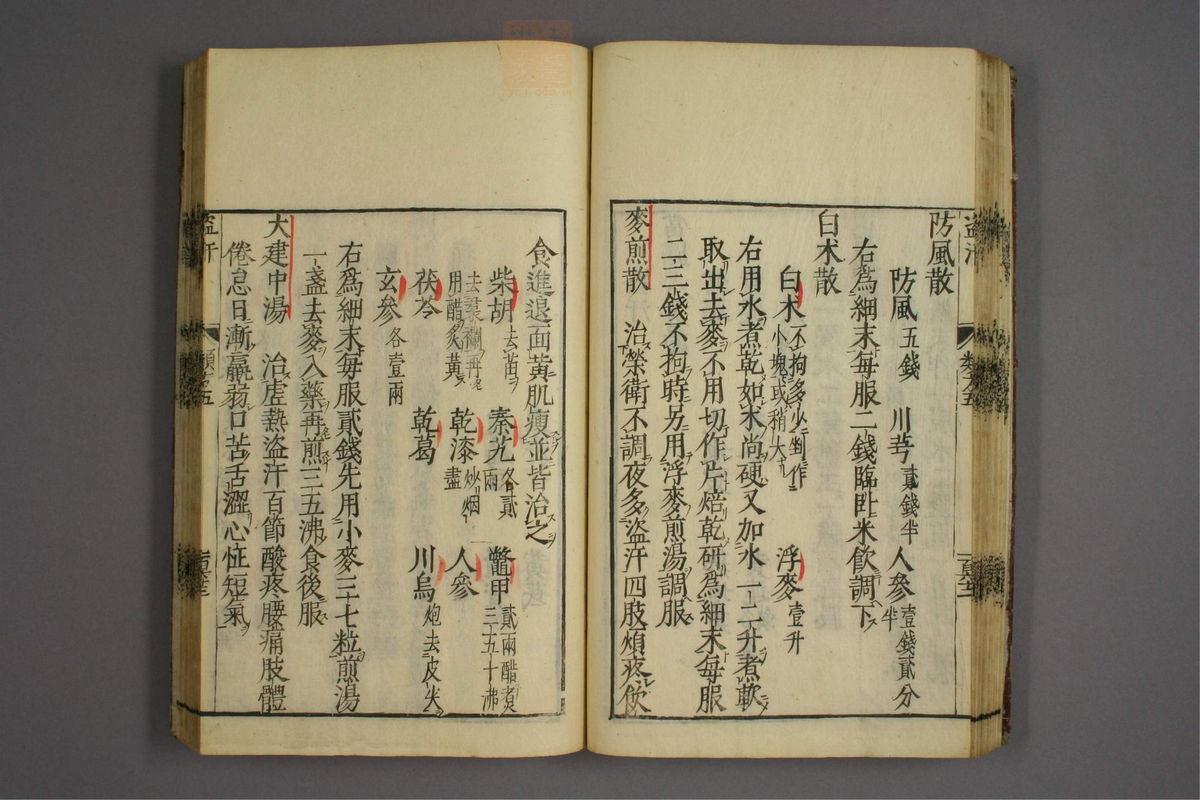 防風散
防風五錢 川芎貳錢半 人參壹錢貳分半
右爲細末每服二錢臨臥米飮調下
白朮散
白朮不拘多少剉作小塊或稍大 浮麥壹升
右用水煮乾如朮尚硬又加水一二升煮軟
取出去麥不用切作片焙乾研爲細末每服
二三錢不拘時另用浮麥煎湯調服
麥煎散 治榮衛不調夜多盜汗四肢煩疼飮
食進退面黃肌瘦並皆治之
柴胡去苗 秦艽各貳兩 鼈甲貳兩醋煮三五十沸
去裙襴再用醋炙黃 乾漆炒烟盡 人參
茯苓 乾葛 川烏炮去皮尖
玄參各壹兩
右爲細末每服貳錢先用小麥三七粒煎湯
一盞去麥入藥再煎三五沸食後服
大建中湯 治虛熱盜汗百節酸疼腰痛肢體
倦怠日漸羸弱口苦舌澀心怔短氣
盜汗